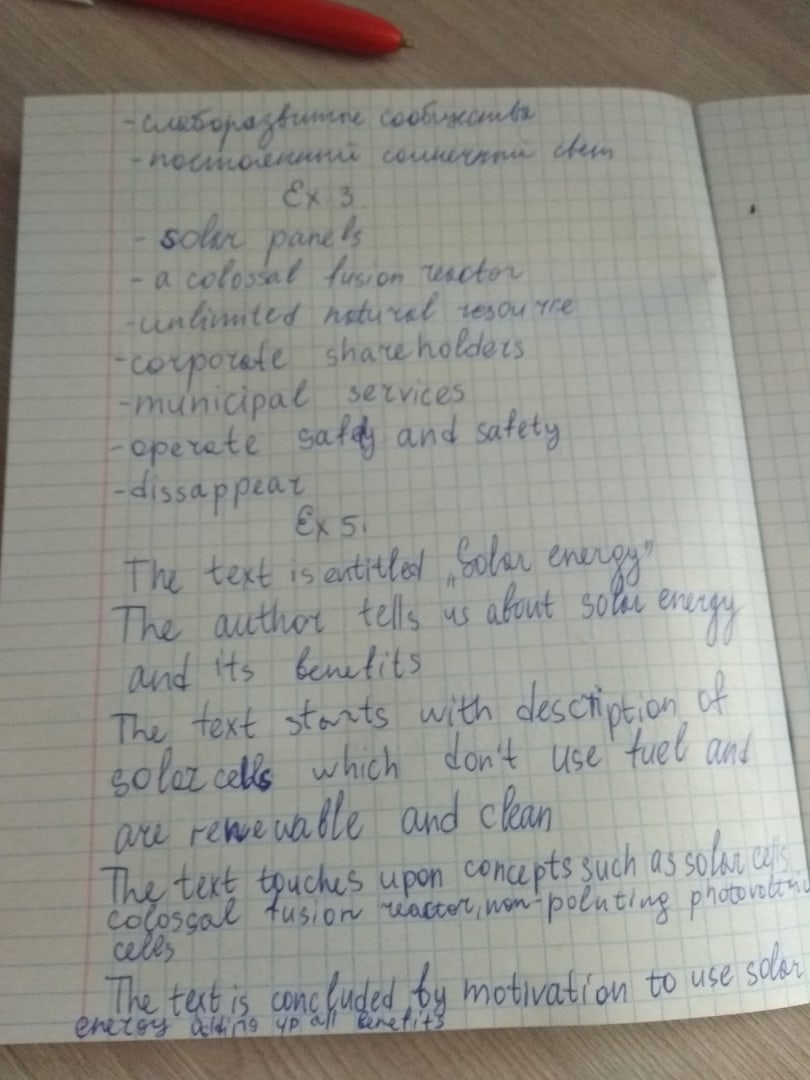 - слаборазвитые сообщества
- постоянный солнечный свет
Ex 3.
- solar panels
- a colossal fusion reactor
- unlimited natural resource
- corporate shareholders
- municipal services
- operate safely and safety
- dissappear
Ex 5.
The text is entitled „Solar energy”
The author tells us about solar energy
and its benefits
The text starts with description of
solar cells which don't use fuel and
are renewable and clean
The text touches upon concepts such as solar cells
colossal fusion reactor, non-poluting photovoltaic
cells
The text is concluded by motivation to use solar
energy adding up all benefits